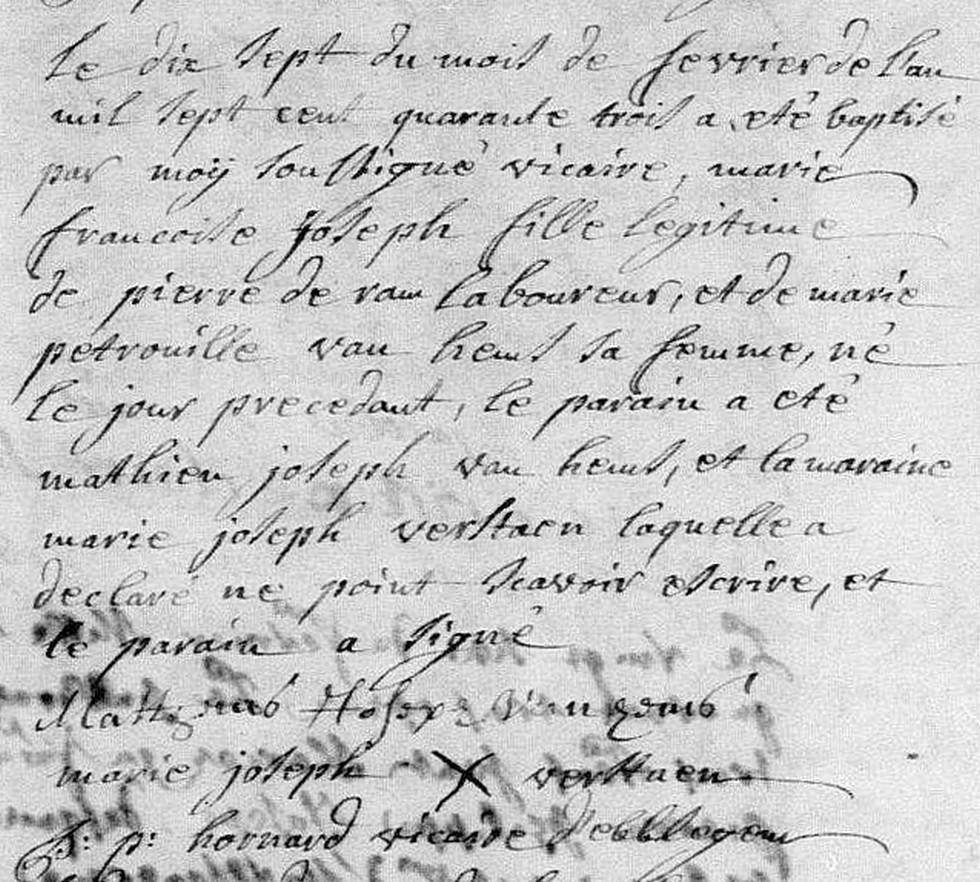 le dix sept du mois de fevrier de l'an
mil sept cent quarante trois a eté baptisé
par moÿ soussigné vicaire, marie
francoise Joseph fille legitime
de pierre de ram laboureur, et de marie
petronille van hems sa femme, né
le jour precedant, le parain a eté
mathieu joseph van hems, et la maraine
marie joseph verstaen laquelle a
declaré ne point scavoir escrire, et
le parain a signé
van
marie joseph X verstaen
p: hornard vicaire